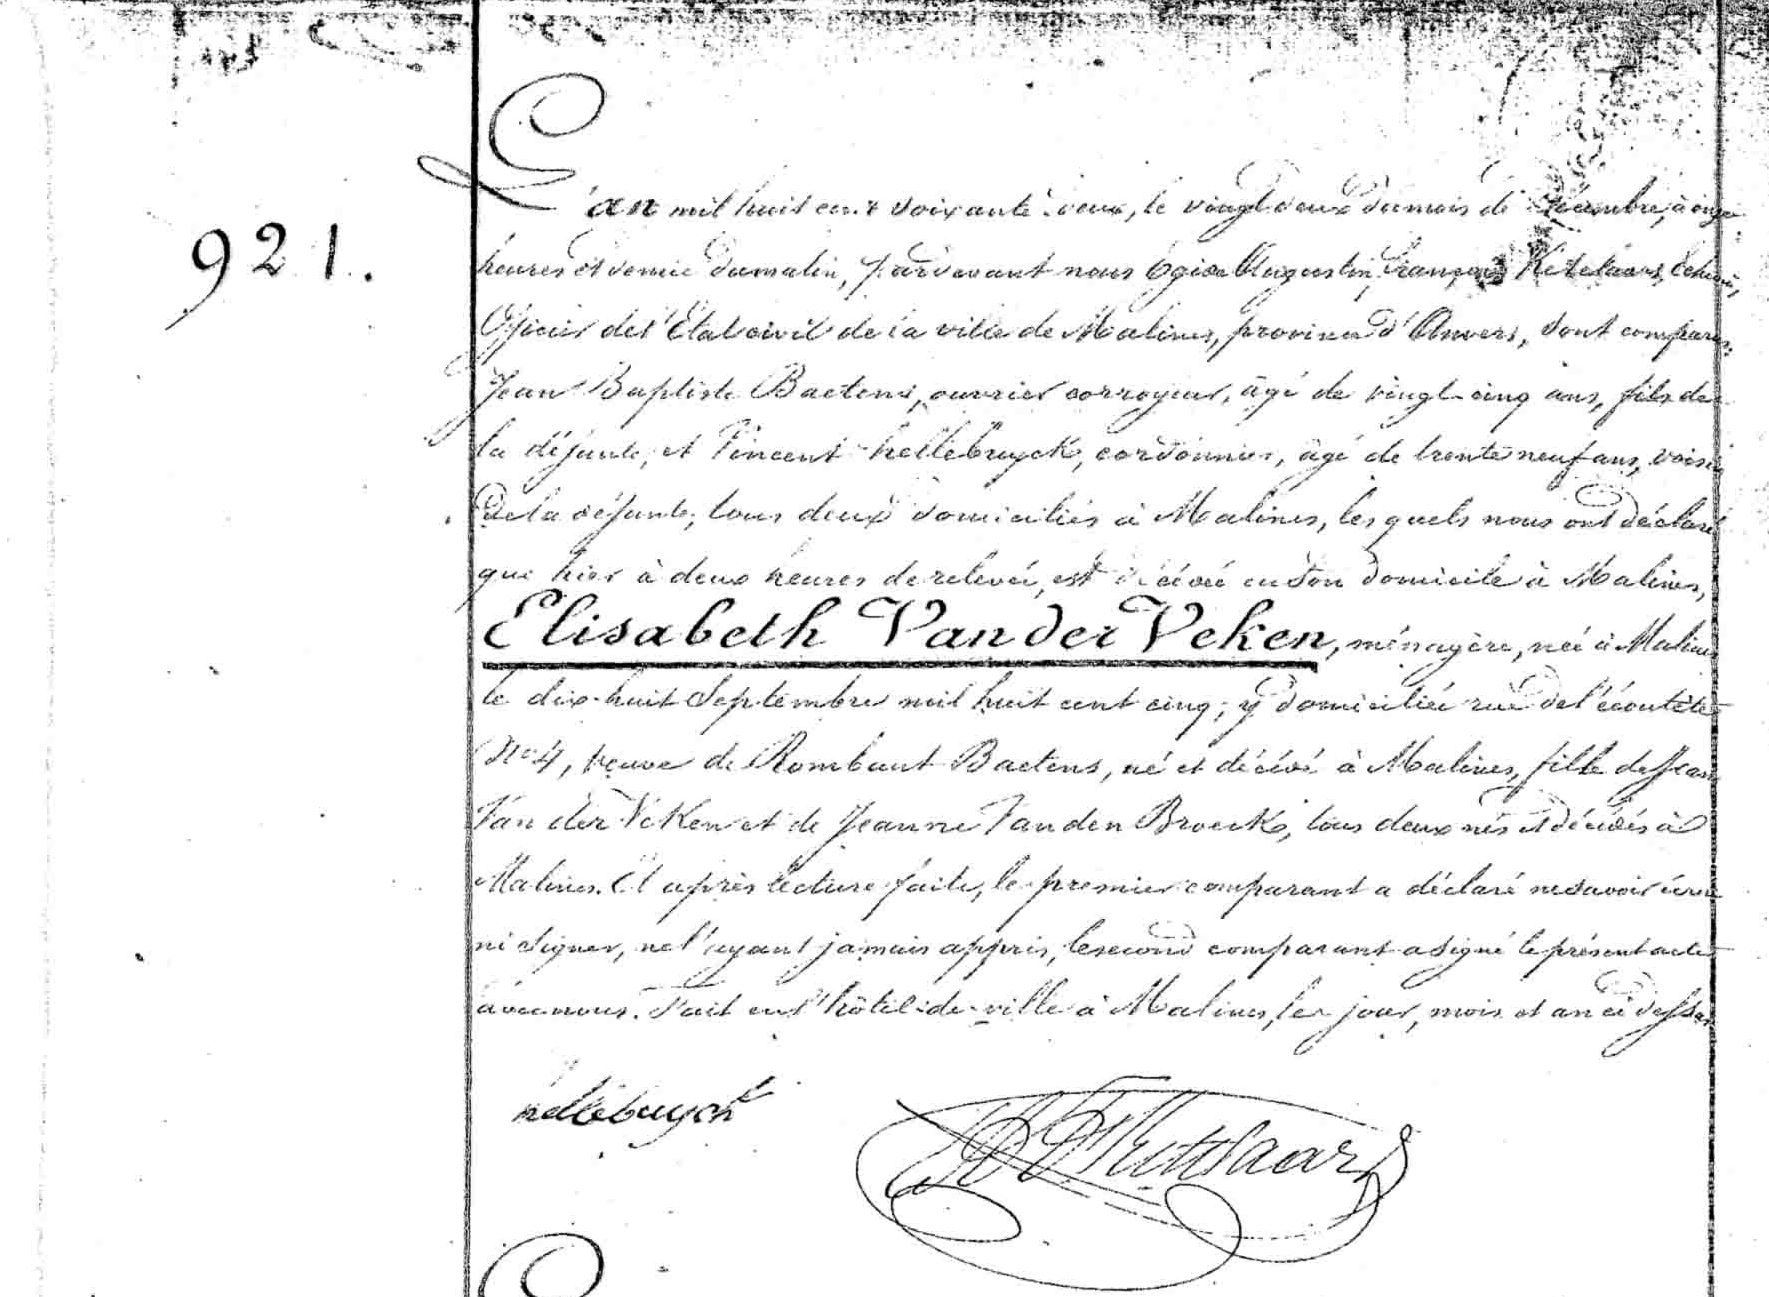 921.
L'an mil huit cent soixante-deux, le vingt deux du mois de Décembre, à onze
heures et demie du matin, pardevant nous Egide Augustin François Ketelaars, Echevin,
Officier de l'Etat civil de la ville de Malines, province d'Anvers, sont comparus
Jean Baptiste Baetens, ouvrier corroyeur, âgé de vingt-cinq ans, fils de
la défunte, et Vincent hellebuyck, cordonnier, âgé de trente neuf ans, voisin
de la défunte, tous deux domiciliés à Malines, les quels nous ont déclaré
que hier à deux heures de relevée, est décédée en son domicile à Malines,
Elisabeth Van der Veken, ménagère, née à Malines
le dix-huit Septembre mil huit cent cinq, y domiciliée rue de l'écoutète
No 4, veuve de Rombaut Baetens, né et décédé à Malines, fille de Jean
Van der Veken et de Jeanne Van den Broeck, tous deux nés et décédés à
Malines. Et après lecture faite, le premier comparant a déclaré ne savoir écrire
ni signer, ne l'ayant jamais appris, le second comparant a signé le présent acte
avec nous. Fait en l'hôtel-de-ville à Malines, les jour, mois et an ci dessus
hellebuyck
Ketelaars